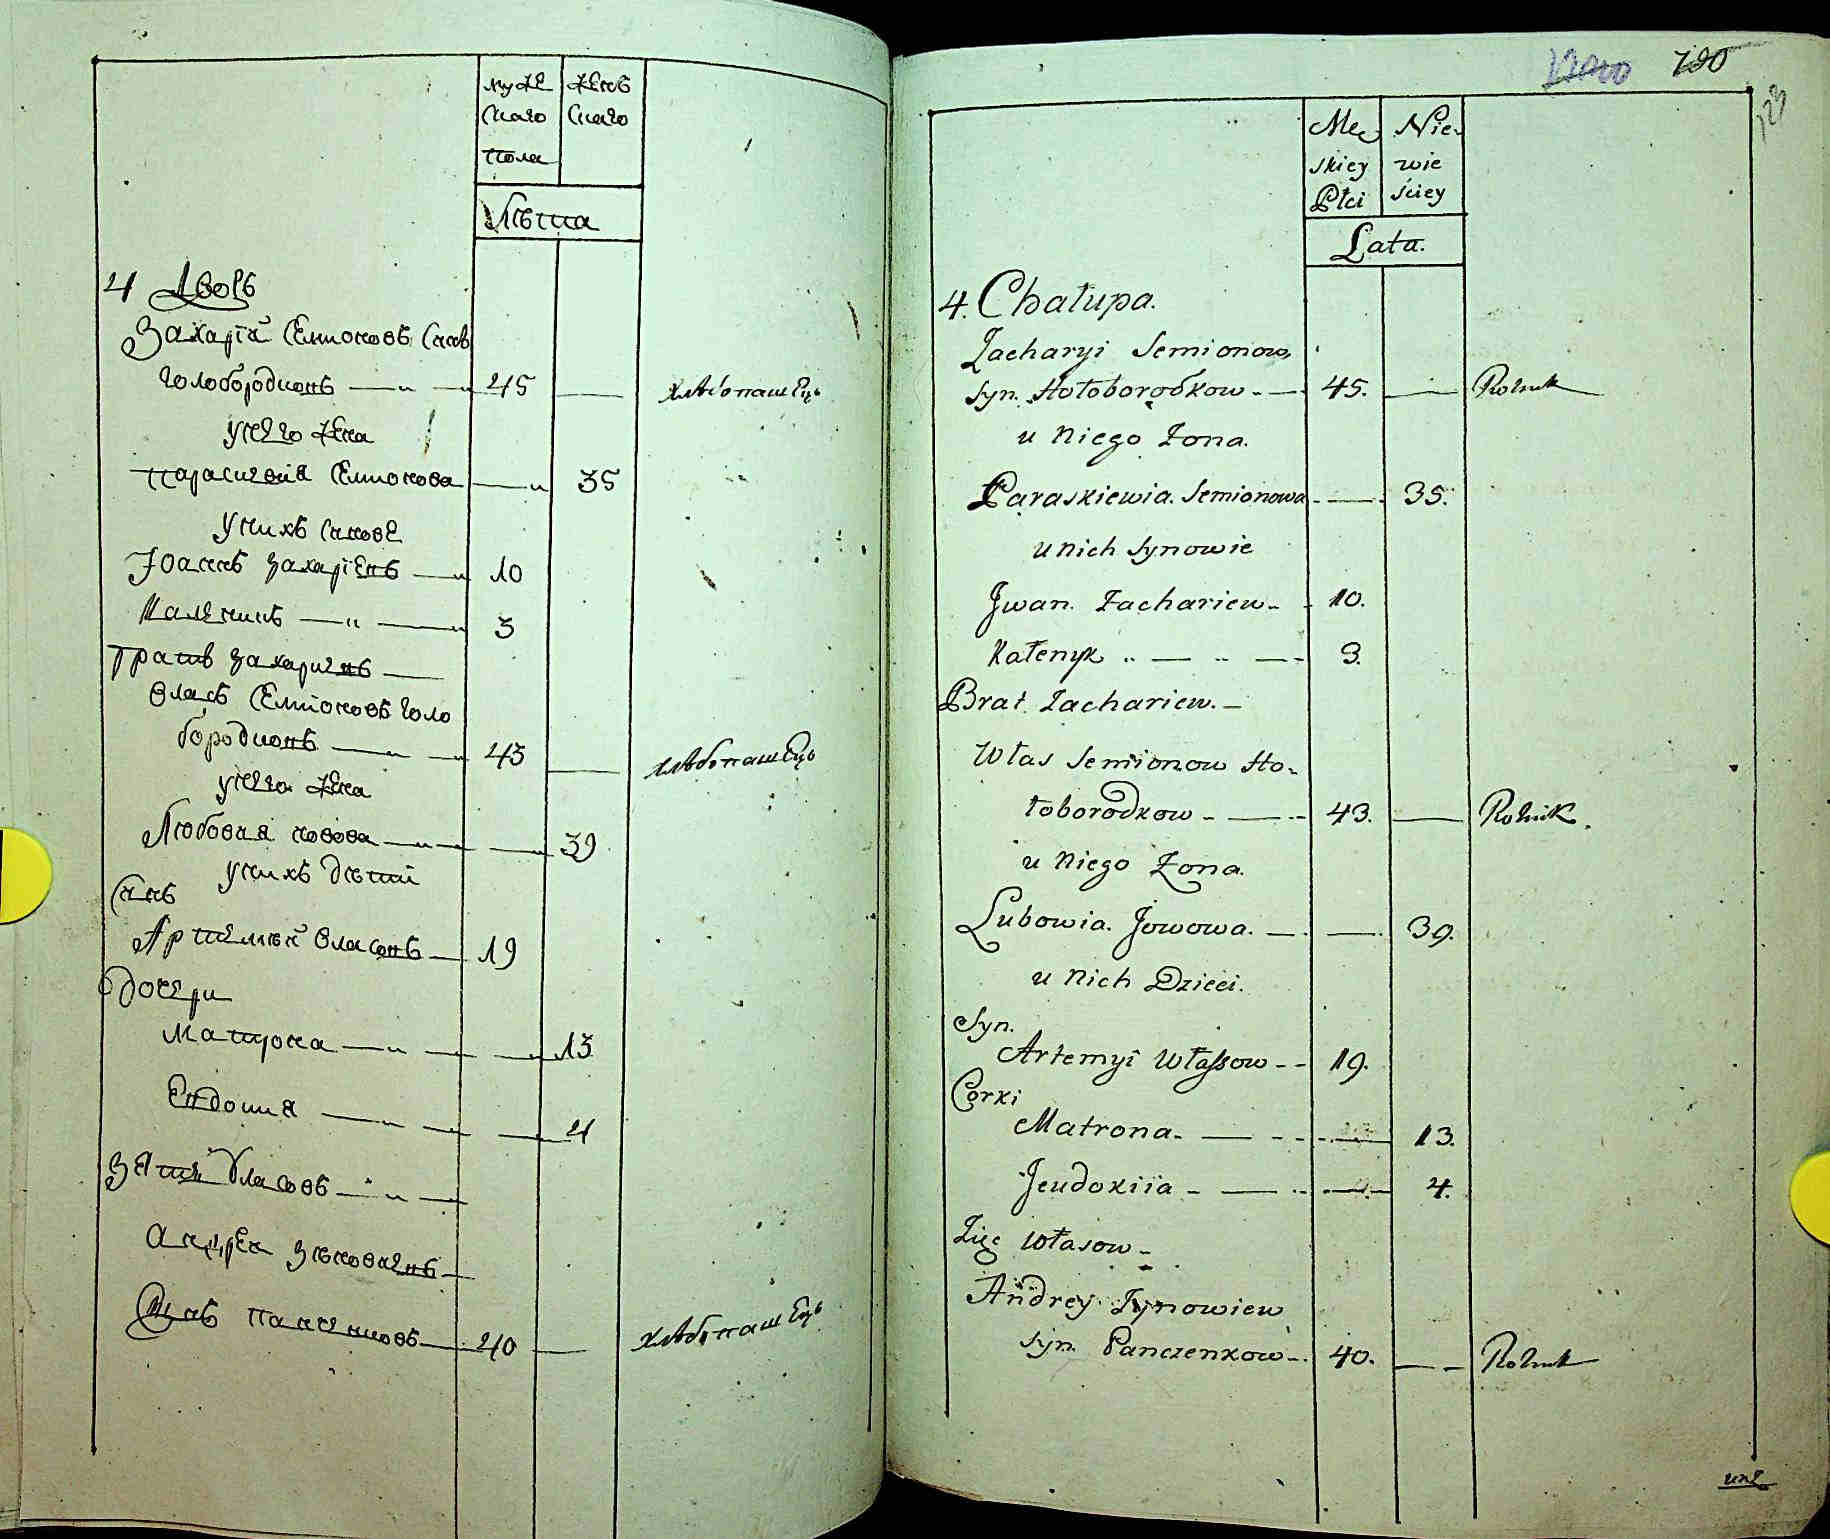 муже
скаго
пола
женъ
скаго
Лѣта
4 Дворъ
Захарiй Семионовъ синъ
Голобородковъ — 45 — хлѣбопашецъ
у него жена
Парасковiя Семионова — 35
у нихъ синове
Iоаннъ Захарiевъ — 10
Каленикъ — " — 3
Братъ Захариевъ —
Власъ Семионовъ Голо
бородковъ — 43 — хлѣбопашецъ
у него жена
Любовия Иовова — 39
у нихъ дѣти
синъ
Артемий Власовъ — 19
Дочери
Матрона — 13
Евдокия — 4
Зять Власовъ —
Андрей Зѣновиевъ —
синъ Панченковъ — 40 — хлѣбопашецъ
790
123
Mę
skiey
Płci
Nie-
wie
ściey
Lata.
4. Chałupa.
Zacharyi Semionow
syn. Hołoborodkow - — 45. — Rolnik
u niego Żona.
Paraskiewia. Semionowa - — 35.
u nich synowie
Jwan. Zachariew - - 10.
Kałenyk " — " — 3.
Brat Zachariew. —
Włas Semionow Ho-
łoborodkow - — 43. — Rolnik.
u niego Żona.
Lubowia. Jowowa. — — 39.
u nich Dzieci.
Syn.
Artemyi Własow - - 19.
Corki
Matrona - — 13.
Jeudokiia - — 4.
Zięć Własow -
Andrey Zynowiew
syn. Panczenkow - 40. — Rolnik